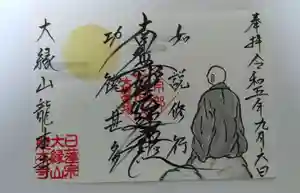 奉拝 令和五年九月六日
如説修行
南無妙法蓮華経
功徳甚多
大縁山龍
日蓮宗
大縁山